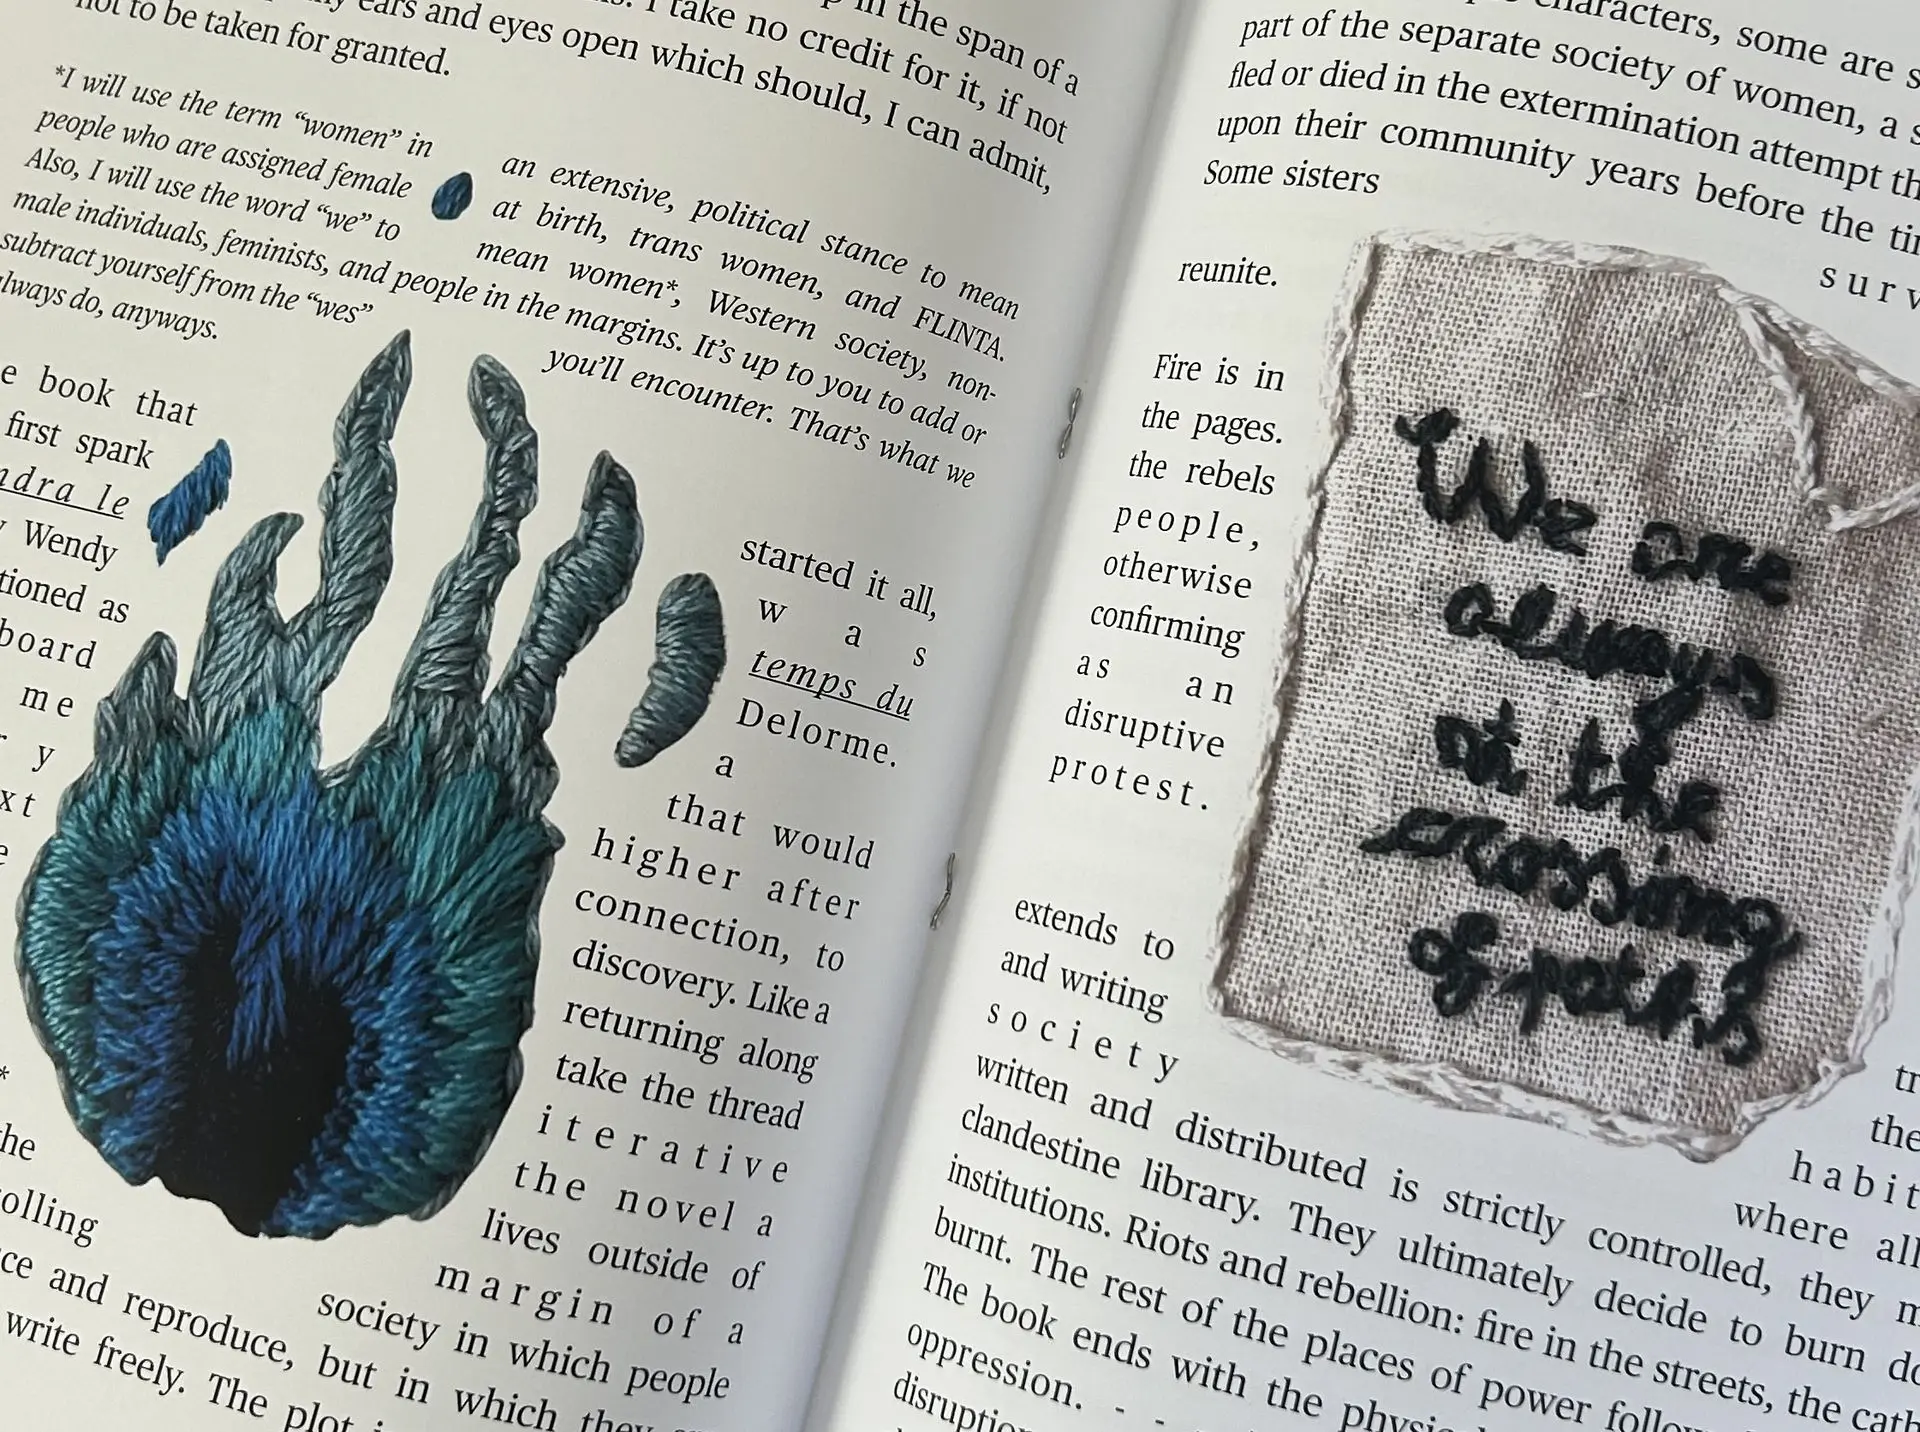 in the span of a
ears and eyes open which should, I can admit,
I take no credit for it, if not
not to be taken for granted.
*I will use the term “women” in an extensive, political stance to mean
people who are assigned female at birth, trans women, and FLINTA.
Also, I will use the word “we” to mean women*, Western society, non-
male individuals, feminists, and people in the margins. It’s up to you to add or
subtract yourself from the “wes” you’ll encounter. That’s what we
always do, anyways.
book that started it all,
first spark w a s
le temps du
Wendy Delorme.
as a
board that would
me higher after
y connection, to
discovery. Like a
returning along
take the thread
iterative
the novel a
lives outside of
margin of a
society in which people
and reproduce, but in which they
write freely. The plot
characters, some are
part of the separate society of women, a
fled or died in the extermination attempt
upon their community years before the
Some sisters
reunite.
Fire is in
the pages.
the rebels
people,
otherwise
confirming
as an
disruptive
protest.
We are
always
at the
crossing
of paths
extends to
and writing
society the
habit
written and distributed is strictly controlled, they
where all
clandestine library. They ultimately decide to burn
institutions. Riots and rebellion: fire in the streets, the
burnt. The rest of the places of power
The book ends with the
oppression.